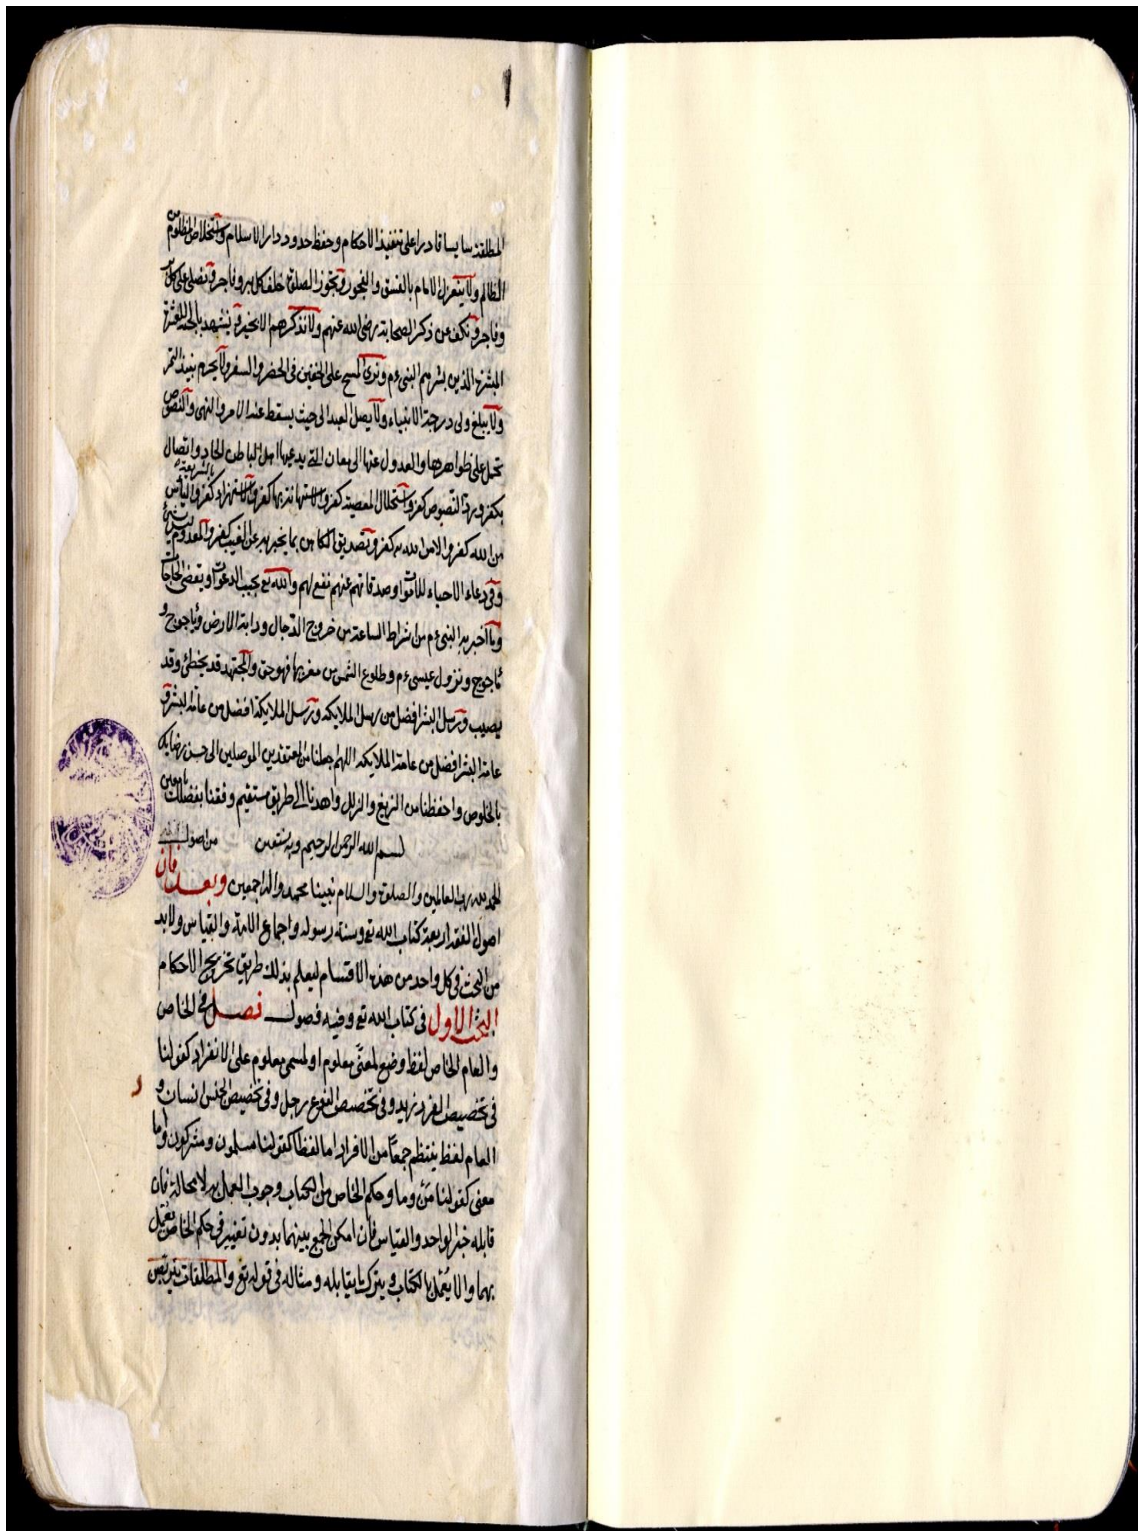 ١
المطلقة سايسا قادرا على تنفيذ الاحكام وحفظ حدود دار الاسلام واستخلاص المظلوم من
الظالم ولا ينعزل الامام بالفسق والفجور وتجوز الصلوة خلف كل بر وفاجر ونصلى على كل بر
وفاجر ونكف عن ذكر الصحابة رضى الله عنهم ولا نذكرهم الا بخير ونشهد بالجنة للعشرة
المبشرة الذين بشرهم النبى ءم ونرى المسح على الخفين فى الحضر والسفر ولا يحرم نبيذ التمر
ولا يبلغ ولى درجة الانبياء ولا يصل العبد الى حيث يسقط عنه الامر والنهى والنصوص
تحمل على ظواهرها والعدول عنها الى معان التى يدعيها اهل الباطن الحاد واتصال
بكفر ورد النصوص كفر واستحلال المعصية كفر والاستهانة بها كفر والاستهزاء بالشريعة كفر والياس
من الله كفر والامن الله به كفر وتصديق الكاهن بما يخبر به عن الغيب كفر والمعدوم ليس بشئ
وفى دعاء الاحياء للاموات وصدقاتهم عنهم نفع لهم والله تع يجيب الدعوات ويقضى الحاجات
وما اخبر به النبى ءم من اشراط الساعة من خروج الدجال ودابة الارض وياجوج و
ماجوج ونزول عيسى ءم وطلوع الشمس من مغربها فهو حق والمجتهد قد يخطئ وقد
يصيب ورسل البشر افضل من رسل الملايكة ورسل الملايكة افضل من عامة البشر و
عامة البشر افضل من عامة الملايكة اللهم اجعلنا من المعتقدين الموصلين الى حسن رضايك
بالخلوص واحفظنا من الزيغ والزلل واهدنا الى طريق مستقيم وفقنا بفضلك يا معين
بسم الله الرحمن الرحيم وبه نستعين من اصول
الحمد لله رب العالمين والصلوة والسلام نبينا محمد واله اجمعين وبعد فان
اصول الفقه اربعة كتاب الله تع وسنة رسوله واجماع الامة والقياس ولا بد
من البحث فى كل واحد من هذه الاقسام ليعلم بذلك طريق تخريج الاحكام
البحث الاول فى كتاب الله تع وفيه فصول فصل فى الخاص
والعام الخاص لفظ وضع لمعنى معلوم او لمسمى معلوم على الانفراد كقولنا
فى تخصيص الفرد زيد وفى تخصيص النوع رجل وفى تخصيص الجنس انسان و
العام لفظ ينتظم جمعا من الافراد اما لفظا كقولنا مسلمون ومشركون واما
معنى كقولنا من وما وحكم الخاص من الكتاب وجوب العمل به لا محالة فان
قابله خبر الواحد والقياس فان امكن الجمع بينهما بدون تغيير فى حكم الخاص يعمل
بهما والا يعمل بالكتاب ويترك ما يقابله ومثاله فى قوله تع والمطلقات يتربصن